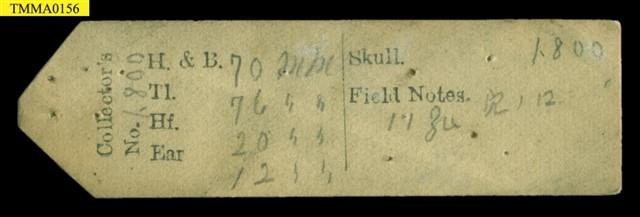 TMMA0156
Collector's
No. 1800
H. & B. 70 mm
Tl. 76 " "
Hf. 20 " "
Ear 12 " "
Skull. 1800
Field Notes.